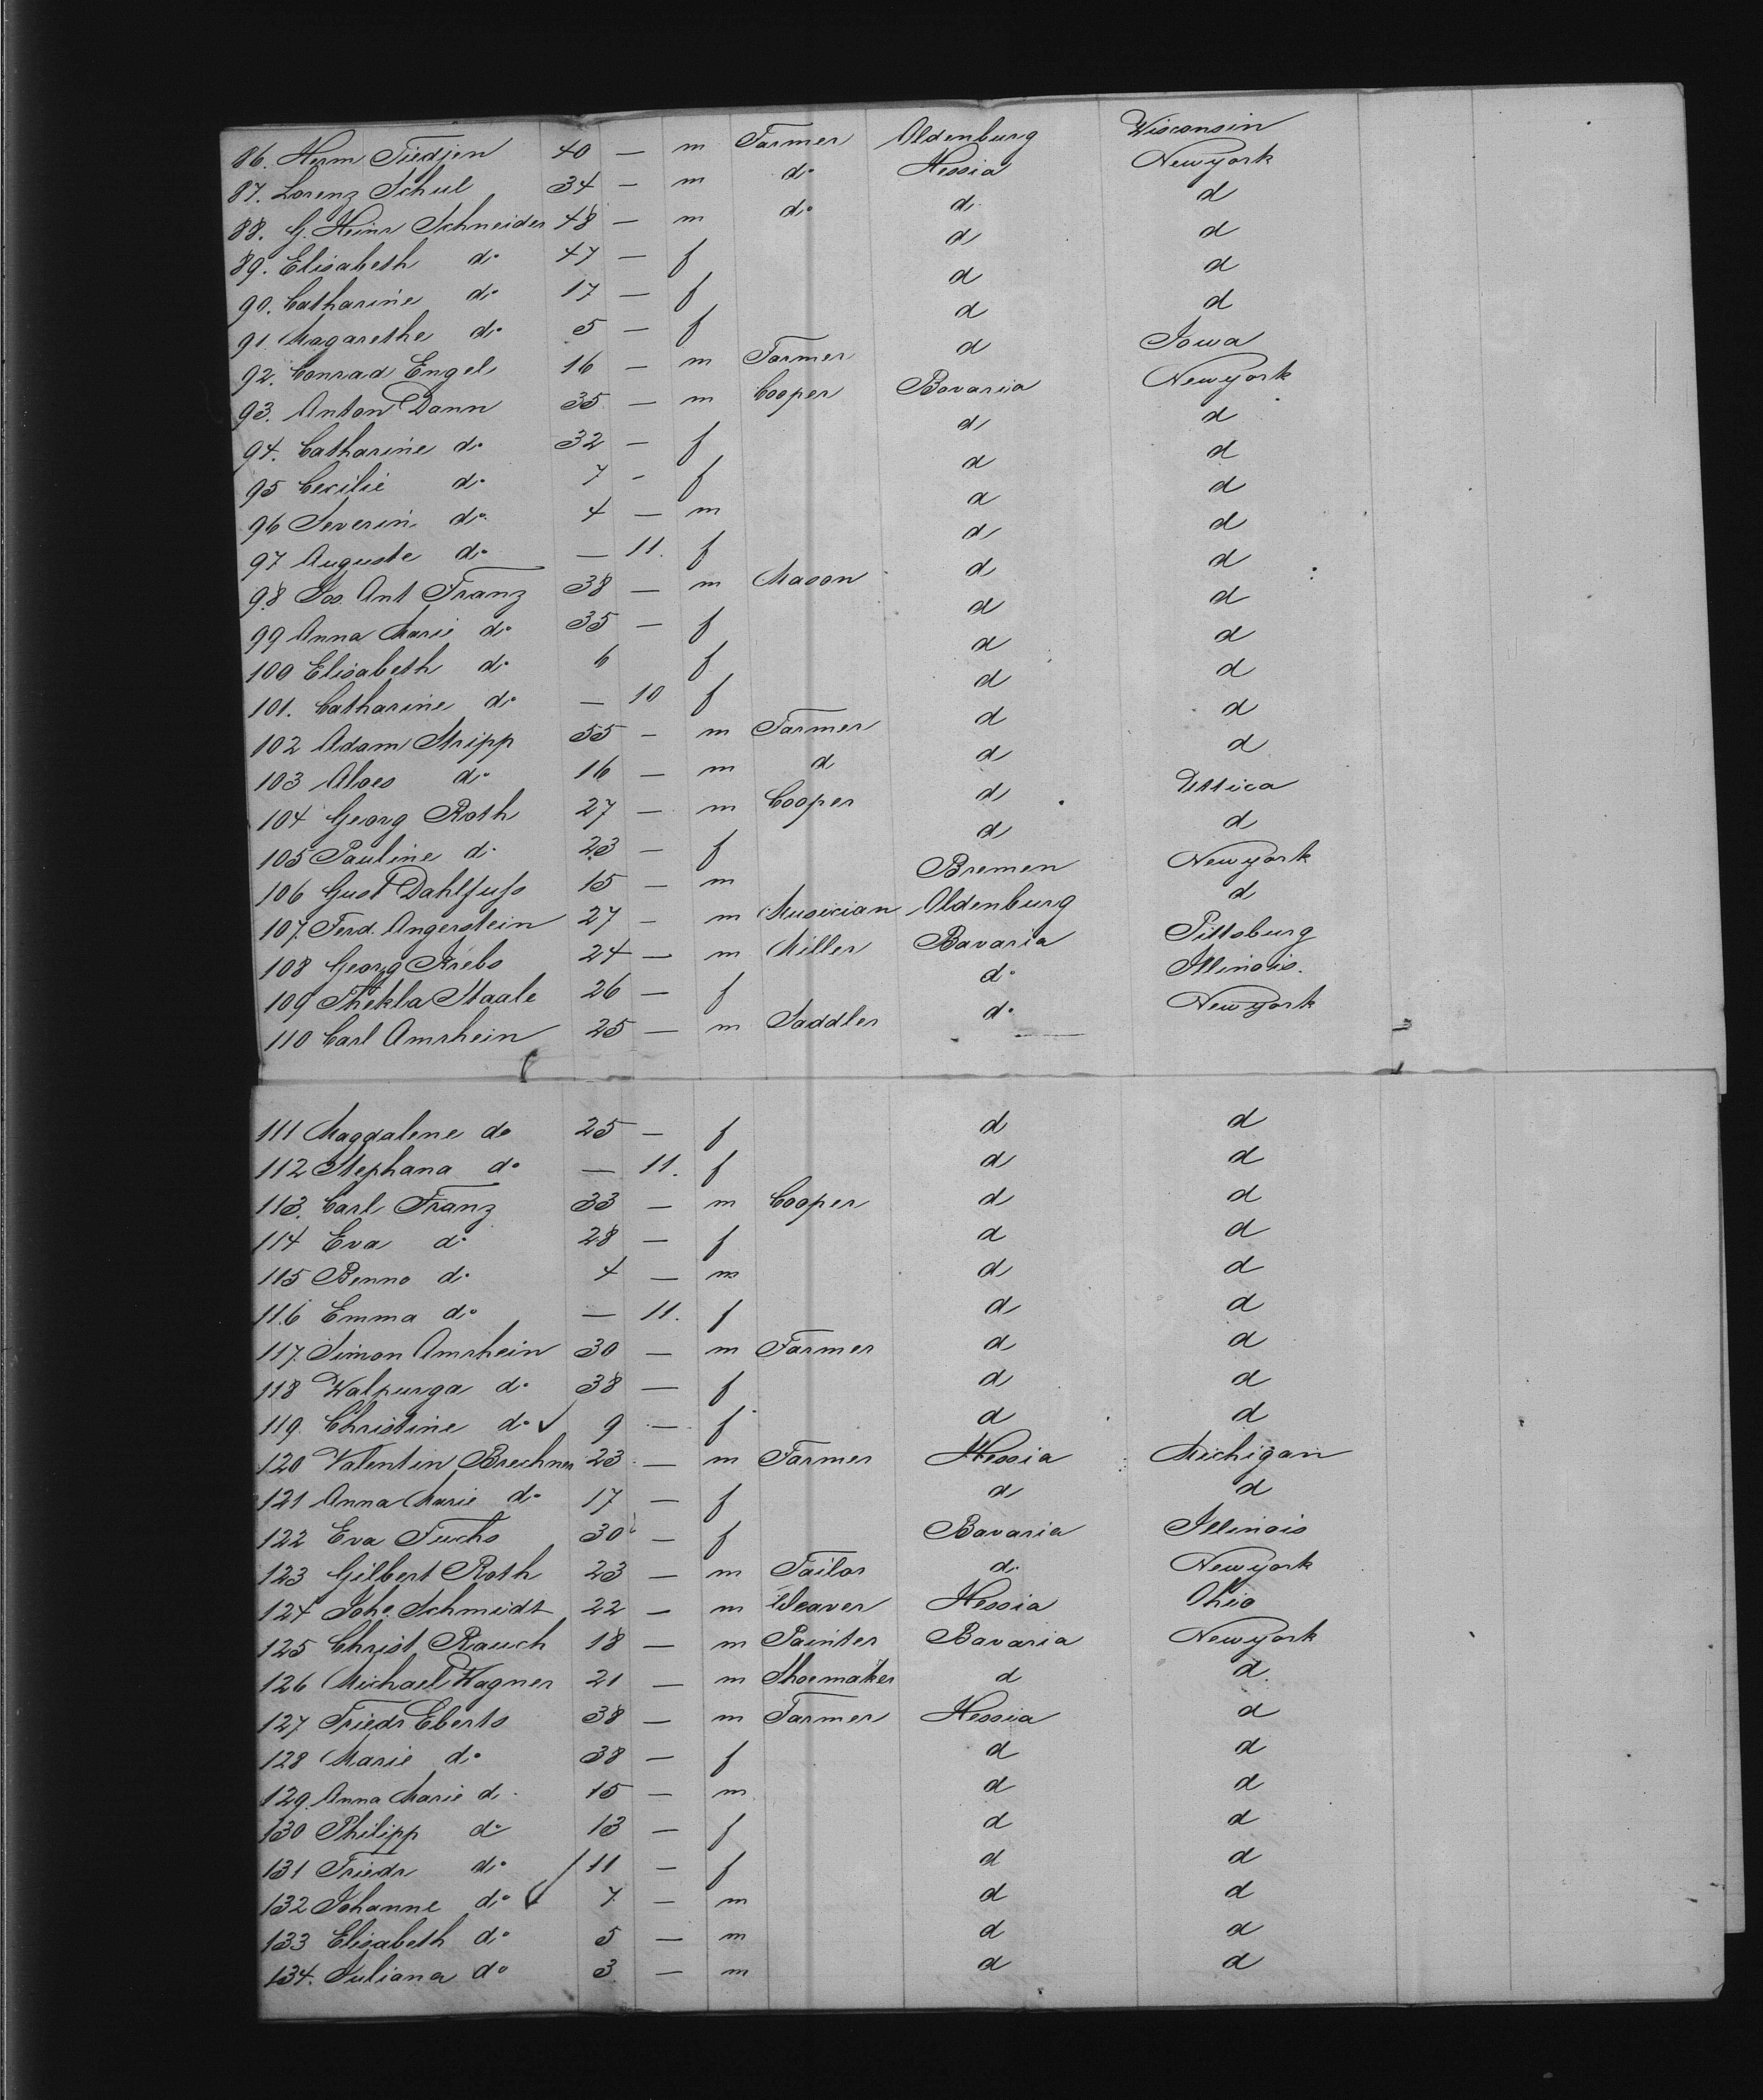 86. Herm Tiedjen 40 — m Farmer Oldenburg Wisconsin
87. Lorenz Schul 34 — m do Hessia Newyork
88. G. Heinr Schneider 48 — m do d. d
89. Elisabeth do 47 — f d d
90. Catharine do 17 — f d d
91 Magarethe do 5 — f d d
92. Conrad Engel 16 — m Farmer d Iowa
93. Anton Dann 35 — m Cooper Bavaria Newyork
94. Catharine do 32 — f d d
95 Cecilie do 7 - f d d
96 Severin do 4 — m d d
97 Auguste do — 11. f d d
98 Jos. Ant Franz 38 — m Mason d d
99 Anna Marie do 35 — f d d
100 Elisabeth do 6 f d d
101. Catharine do — 10 f d d
102 Adam Stripp 55 - m Farmer d d
103 Aloes do 16 — m d d d
104 Georg Roth 27 — m Cooper d Uttica
105 Pauline do 23 — f d d
106 Gust Dahlfuſs 15 — m Bremen Newyork
107. Ferd. Angerstein 27 — m Musician Oldenburg d
108 Georg Krebs 24 — m Miller Bavaria Pittsburg
109 Thekla Staale 26 — f do Illinois.
110 Carl Amrhein 25 — m Saddler do Newyork
111 Magdalene do 25 — f d d
112 Stephana do — 11. f d d
113. Carl Franz 33 — m Cooper d d
114 Eva do 28 — f d d
115 Benno do 4 — m d d
116 Emma do — 11. f d d
117. Simon Amrhein 30 — m Farmer d d
118 Walpurga do 38 — f d d
119. Christine do ✓ 9 — f d d
120 Valentin Brechner 23 — m Farmer Hessia Michigan
121 Anna Marie do 17 — f d d
122 Eva Fuchs 30 — f Bavaria Illinois
123 Gilbert Roth 23 — m Tailor do Newyork
124 Johs. Schmidt 22 — m Weaver Hessia Ohio
125 Christ. Rauch 18 — m Painter Bavaria Newyork
126 Michael Wagner 21 — m Shoemaker d d.
127 Friedr Eberts 38 — m Farmer Hessia d
128 Marie do 38 — f d d
129. Anna Marie d. 15 — m d d
130 Philipp do 13 — f d d
131 Friedr do / 11 — f d d
132 Johanne do ✓ 7. — m d d
133 Elisabeth do 5 — m d d
134. Juliana do 3 — m d d